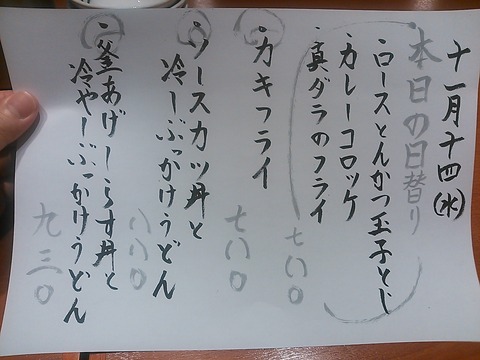 十一月十四(水)
本日の日替り
・ロースとんかつ玉子とじ
・カレーコロッケ
・真ダラのフライ
七八〇
・カキフライ
七八〇
・ソースカツ丼と
冷しぶっかけうどん
八八〇
・釜あげしらす丼と
冷やしぶっかけうどん
九三〇